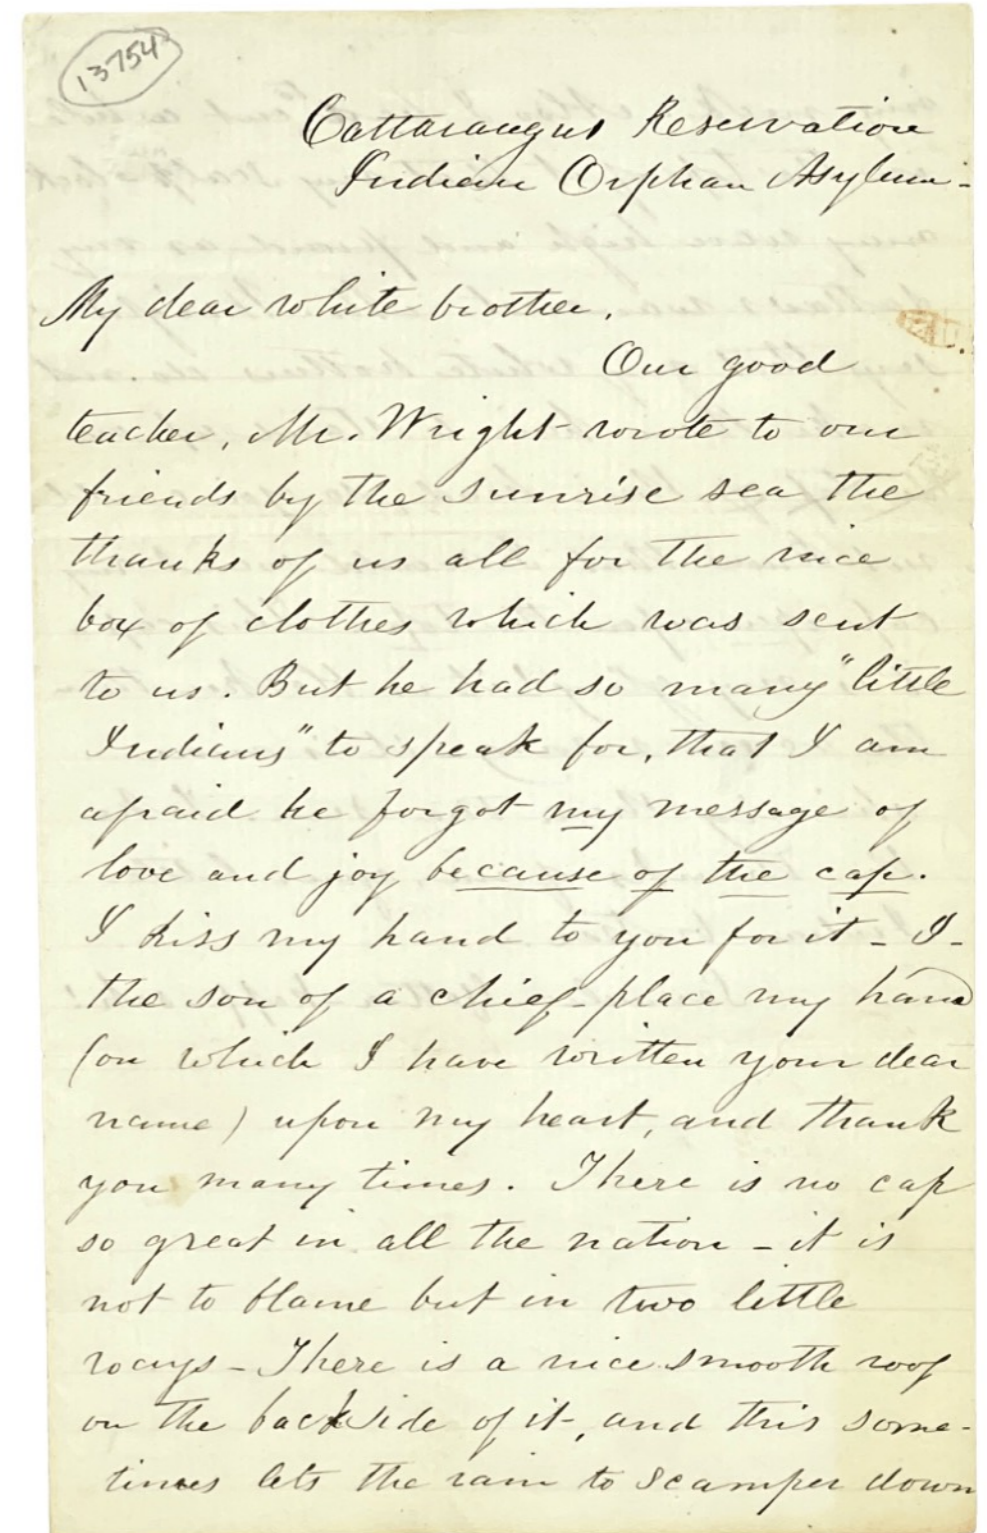 13754
Cattaraugus Reservation
Indian Orphan Asylum -
My dear white brother.
Our good
teacher, Mr. Wright wrote to our
friends by the sunrise sea the
thanks of us all for the nice
box of clothes which was sent
to us. But he had so many "little
Indians" to speak for, that I am
afraid he forgot my message of
love and joy because of the cap.
I kiss my hand to you for it - I -
the son of a chief - place my hand
(on which I have written your dear
name) upon my heart, and thank
you many times. There is no cap
so great in all the nation - it is
not to blame but in two little
ways - There is a nice smooth roof
on the backside of it, and this some-
times lets the rain to scamper down